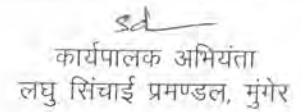 sd
कार्यपालक अभियंता
लघु सिंचाई प्रमण्डल, मुंगेर